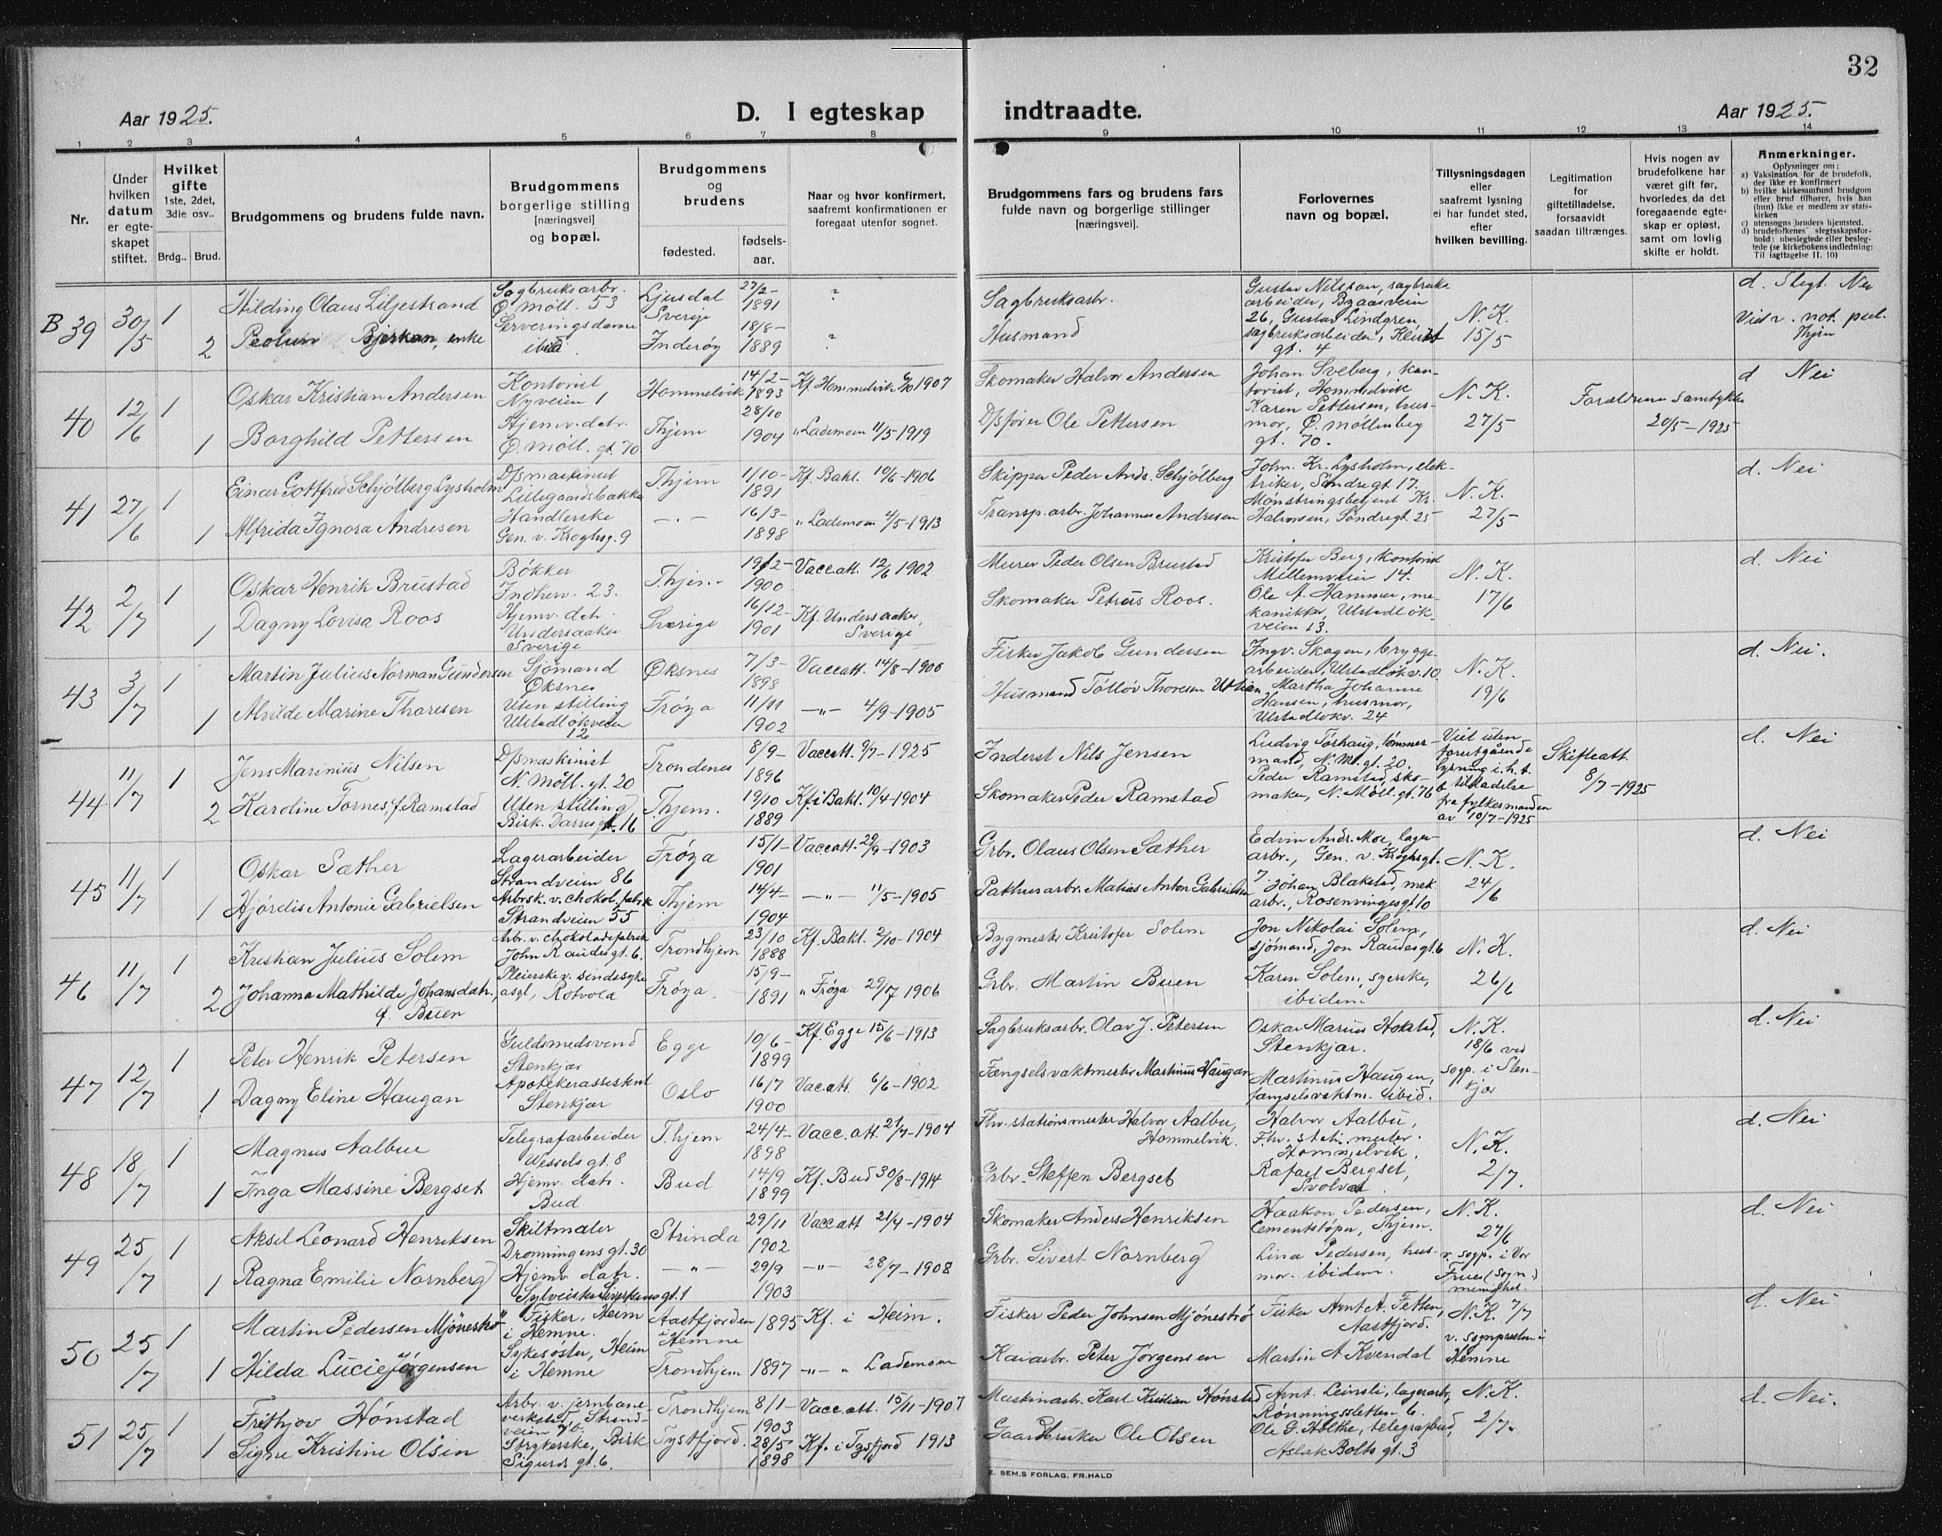 32
Aar 1925.
D. I egteskap indtraadte.
Aar 1925.
1 2 3 4 5 6 7 8 9 10 11 12 13 14
Nr.
Under hvilken datum er egteskapet stiftet.
Hvilket gifte
1ste, 2det, 3die osv..
Brdg.. Brud.
Brudgommens og brudens fulde navn.
Brudgommens borgerlige stilling [næringsvei] og bopæl.
Brudgommens og brudens
fødested. fødsels-aar.
Naar og hvor konfirmert, saafremt konfirmationen er foregaat utenfor sognet.
Brudgommens fars og brudens fars fulde navn og borgerlige stillinger [næringsvei].
Forlovernes navn og bopæl.
Tillysningsdagen eller saafremt lysning ei har fundet sted, efter hvilken bevilling.
Legitimation for giftetilladelse, forsaavidt saadan tiltrænges.
Hvis nogen av brudefolkene har været gift før, hvorledes da det foregaaende egteskap er opløst, samt om lovlig skifte er holdt.
Anmerkninger.
Oplysninger om:
a) Vaksination for de brudefolk, der ikke er konfirmert
b) hvilke kirkesamfund brudgom eller brud tilhører, hvis han (hun) ikke er medlem av statskirken
c) utensogns bruders hjemsted.
d) brudefolkenes slegtsskapsforhold: ubeslegtede eller beslegtede (se kirkebokens indledning: Til iagttagelse II. 10)
B 39 30/5 1 Hilding Olaus Liljestrand Sagbruksarbr. Ø. Möll. 53 Ljusdal Sverige 27/2-1891 ? Sagbruksarbr. Gustav Nilsson, sagbruksarbeider, 26, Gustav Lindgren sagbruksarbeider, gt. 4 N. K. 15/5 d. Slegt. Nei
2 Bjerkan, enke Serveringsdame ibid Inderøy 18/8-1889 ? Husmand
40 12/6 1 Oskar Kristian Andersen Kontorist Nyveien 1 Hommelvik 14/2-1893 Kf. Hommelvik 1907 Skomaker Halvor Andersen Johan Sveberg, kontorist, Hommelvik N. K. 27/5 Forældrene samtykke 20/5-1925 d Nei
1 Borghild Pettersen Hjemv. datr. Ø. Möll. gt. 70 Thjem 28/10 1904 " Lademoen 11/5-1919 D/sfører Ole Pettersen Karen Pettersen, husmor, Ø. möllenberg gt. 70.
41 27/6 1 Einar Gottfred Schjølberg Lysholm D/smaskinist Lillegaardsbakke Thjem 1/10-1891 Kf. Bakl. 10/6-1906 Skipper Peder Ands. Schjølberg John. Kr. Lysholm, elektriker, Søndregt 17. N. K. 27/5 d. Nei
1 Alfrida Ignora Andresen Handlerske Gen. v. Kroghsg. 9 -„- 16/3-1898 " Lademoen 4/5-1913 Transp.arbr. Johannes Andresen Mønstringsbetjent Kr. Halvorsen, Søndregt. 25
42 2/7 1 Oskar Henrik Brustad Bøkker Indherv. 23. Thjem 19/2-1900 Vacc.att. 12/6 1902 Murer Peder Olsen Brustad Kristofer Berg, kontorist Mellemveien 14. N. K. 17/6 d. Nei
1 Dagny Lovisa Roos Hjemv. dtr. Undersaaker Sverige Sverige 16/12-1901 Kf. Undersaaker, Sverige Skomaker Petrus Roos. Ole A. Hammer, mekanikker, Ulstadløkveien 13.
43 3/7 1 Martin Julius Norman Gundersen Sjømand Øksnes Øksnes 7/3-1898 Vaccatt. 14/8-1906 Fisker Jakob Gundersen Ingv. Skagen, bryggearbeider, Ulstadløkv. 10 N. K. 19/6 d. Nei.
1 Alvilde Marine Thoresen Uten stilling Ulstadløkveien 12 Frøya 11/11 1902 -„- 4/9-1905 Husmand Tolløv Thoresen Martha Johanne Hansen, husmor, Ulstadløkv. 24
44 11/7 1 Jens Marinius Nilsen D/smaskinist N. Möll. gt. 20 Trondenes 8/9-1896 Vaccatt. 9/7-1925 Inderst Nils Jensen Ludvig Torhaug, tømmermand, N. Ml. gt. 20. Viet uten forutgående lysning i.h.t. tilladelse fra fylkesmanden av 10/7-1925 Skifteatt 8/7-1925 d. Nei
2 Karoline Fornes, f. Ramstad Uten stilling Bisk. Darresgt. 16 Thjem. 19/10 1889 Kf. i Bakl. 10/4-1904 Skomaker Peder Ramstad Peder Ramstad, skomaker, N. Möll. gt. 76
45 11/7 1 Oskar Sæther Lagerarbeider Strandveien 86 Frøya 15/1-1901 Vaccatt. 29/9-1903 Grbr. Olaus Olsen Sæther Edvin Andr. Moe, lagerarbr., Gen. v. Kroghsgt. 7. N. K. 24/6 d. Nei
1 Hjørdis Antonie Gabrielsen Arbrsk. v. chokol. fabrik Strandveien 55 Thjem 14/4-1904 -„- 11/5-1905 Pakhusarbr. Matias Anton Gabrielsen Johan Blakstad, mek. arbr., Rosenvingesgt. 10
46 11/7 1 Kristian Julius Solem Arbr. v. chokoladefabrik John Raudesgt. 6. Trondhjem 23/10 1888 Kf. Bakl. 2/10-1904 Bygmester Kristofer Solem Jon Nikolai Solem, sjömand, Jon Raudesgt. 6 N. K. 26/6 d. Nei
2 Johanna Mathilde Johansdatr., f. Buen Pleierske v. sindesyke asyl, Rotvold Frøya. 15/9-1891 " Frøya 29/7 1906 Grbr. Martin Buen Karen Solem, syerske, ibidem
47 12/7 1 Peter Henrik Petersen Guldsmedsvend Stenkjær Egge 10/6-1899 Kf. Egge 15/6-1913 Sagbruksarbr. Olav J. Petersen Oskar Marius Hokstad, Stenkjær. N. K. 18/6 ved sogp. i Stenkjær d. Nei
1 Dagny Eline Haugan Apotekerassistent Stenkjær Oslo 16/7 1900 Vacc.att. 6/6-1902 Fængselsvaktmester Martinius Haugan Martinius Haugen, fængselsvaktm. ibid.
48 18/7 1 Magnus Aalbue Telegrafarbeider Wesselsgt. 8 Thjem 24/4-1898 Vacc. att. 21/7-1904 Jhv. stationsmester Halvor Aalbu, Hommelvik. Halvor Aalbu, Jhv. stat. mester. Hommelvik. N. K. 2/7. d. Nei
1 Inga Massine Bergset Hjemv. datr. Bud Bud 14/9 1899 Kf. Bud 30/8-1914 Grbr. Steffen Bergset Rafael Bergset, Svolvær
49 25/7 1 Aksel Leonard Henriksen Skiltmaler Dronningensgt. 30 Strinda 29/11 1902 Vaccatt 21/4-1904 Skomaker Anders Henriksen Haakon Pedersen, Cementstøper, Thjem. N. K. 27/6 v. sogp. i Vor Frue (sogn) menighet. d. Nei
1 Ragna Emilie Nornberg Hjemv. datr. -„- 29/9 1903 -„- 28/7-1908 Grbr. Sivert Nornberg Lina Pedersen, husmor. ibidem.
50 25/7 1 Martin Pedersen Mjönestrø Fisker, Heim i Hemne. Aastfjorden i Hemne 1895 Kf. i Heim. Fisker Peder Johnsen Mjönestrø Fisker Arnt A. Tetten, Aastfjord. N. K. 7/7 v. sognpresten i Hemne d. Nei
1 Hilda Lucie Jørgensen Sykesøster, Heim i Hemne Trondhjem 1897 -„- " Lademoen Kaiarbr. Peter Jørgensen Martin A Kvendal
51 25/7 1 Frithjov Hønstad Arbr. v. jernbaneverksted, Strandveien 7b. Trondhjem 8/1-1903 Vacc.att. 15/11-1907 Maskinarbr. Karl Kristian Hønstad Arnt. Leinsli, lagerarbr., Rønningsletten 6. N. K. 2/7. d. Nei.
1 Signe Kristine Olsen Strykerske, Birk Sigurds gt. 6. Tysfjord. 28/5 1898 Kf. i Tysfjord 1913 Gaardbruker Ole Olsen Ole G. Holthe, telegrafbud, Aslak Bolts gt. 3
E. SEM.S FORLAG, FR.HALD